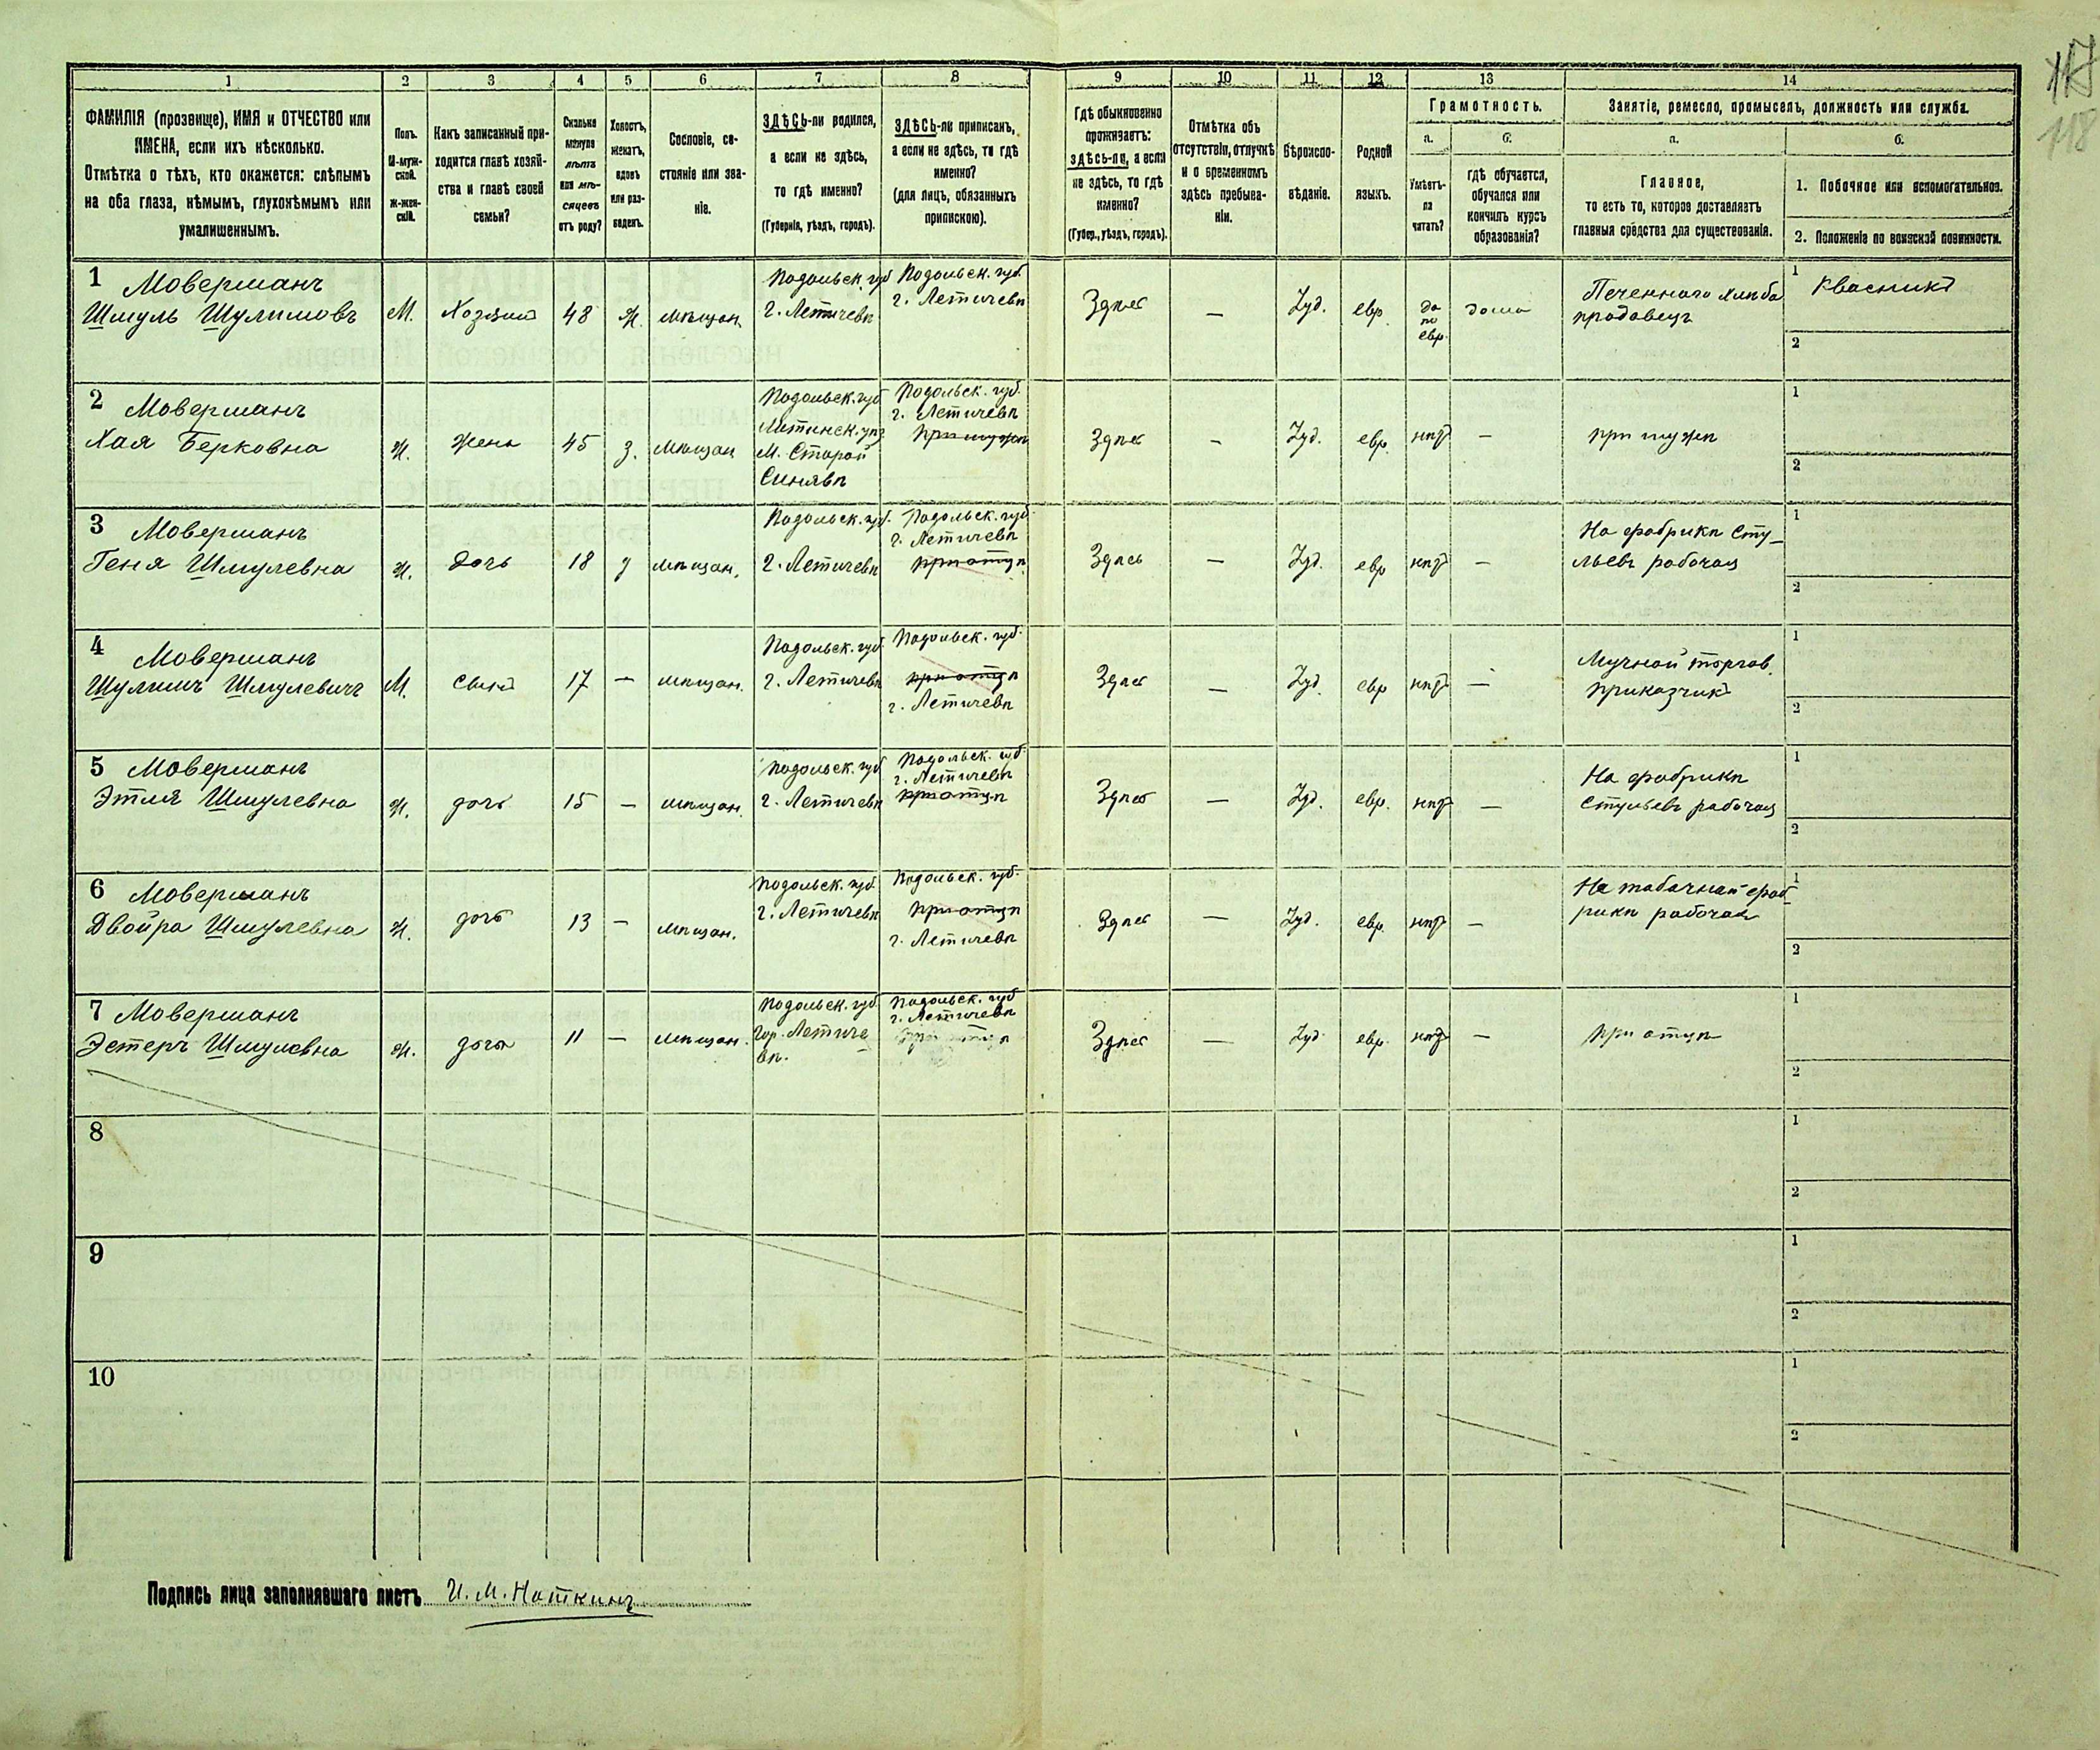 117
118
1 2 3 4 5 6 7 8 9 10 11 12 13 14
ФАМИЛІЯ (прозвище), ИМЯ и ОТЧЕСТВО или
ИМЕНА, если ихъ нѣсколько.
Отмѣтка о тѣхъ, кто окажется: слѣпымъ
на оба глаза, нѣмымъ, глухонѣмымъ или
умалишеннымъ.
Полъ.
М-муж-
ской.
Ж-жен-
скій.
Какъ записанный при-
ходится главѣ хозяй-
ства и главѣ своей
семьи?
Сколько
минуло
лѣтъ
или мѣ-
сяцевъ
отъ роду?
Холостъ,
женатъ,
вдовъ
или раз-
веденъ.
Сословіе, со-
стояніе или зва-
ніе.
ЗДѢСЬ-ли родился,
а если не здѣсь,
то гдѣ именно?
(Губернія, уѣздъ, городъ).
ЗДѢСЬ-ли приписанъ,
а если не здѣсь, то гдѣ
именно?
(для лицъ, обязанныхъ
припискою).
Гдѣ обыкновенно
проживаетъ:
здѣсь-ли, а если
не здѣсь, то гдѣ
именно?
(Губер., уѣздъ, городъ).
Отмѣтка объ
отсутствіи, отлучкѣ
и о временномъ
здѣсь пребыва-
ніи.
Вѣроиспо-
вѣданіе.
Родной
языкъ.
Грамотность.
а.
Умѣетъ-
ли
читать?
б.
гдѣ обучается,
обучался или
кончилъ курсъ
образованія?
Занятіе, ремесло, промыселъ, должность или служба.
а.
Главное,
то есть то, которое доставляетъ
главныя средства для существованія.
б.
1. Побочное или вспомогательное.
2. Положеніе по воинской повинности.
1 Моверманъ
Шмуль Шулимовъ
М.
Хозяинъ
48
Ж.
мѣщан.
Подольск. губ
г. Летичевѣ
Подольск. губ.
г. Летичевѣ
Здѣсь
—
Іуд.
евр.
да
по
евр.
дома
Печеннаго хлѣба
продавецъ
1 Квасникъ
2
2 Моверманъ
Хая Берковна
Ж.
жена
45
З.
мѣщан
Подольск. губ
М. Старой
Синявѣ
Подольск. губ.
г. Летичевѣ
при мужѣ
Здѣсь
—
Іуд.
евр.
нѣтъ
—
при мужѣ
1
2
3 Моверманъ
Геня Шмулевна
Ж.
дочь
18
мѣщан.
Подольск. губ.
г. Летичевѣ
Подольск. губ.
г. Летичевѣ
при отцѣ
Здѣсь
—
Іуд.
евр
нѣтъ
—
На фабрикѣ Сту-
льевъ рабочая
1
2
4 Моверманъ
Шулимъ Шмулевичъ
М.
сынъ
17
—
мѣщан.
Подольск. губ.
г. Летичевѣ
Подольск. губ.
при отцѣ
г. Летичевѣ
Здѣсь
—
Іуд.
евр
нѣтъ
—
Мучной торгов.
приказчикъ
1
2
5 Моверманъ
Этля Шмулевна
Ж.
дочь
15
—
мѣщан.
Подольск. губ
г. Летичевѣ
Подольск. губ.
г. Летичевѣ
при отцѣ
Здѣсь
—
Іуд.
евр.
нѣтъ
—
На фабрикѣ
Стульевъ рабочая
1
2
6 Моверманъ
Двойра Шмулевна
Ж.
дочь
13
—
мѣщан.
Подольск. губ.
г. Летичевѣ
Подольск. губ.
при отцѣ
г. Летичевѣ
Здѣсь
—
Іуд.
евр.
нѣтъ
—
На табачной фаб-
рикѣ рабочая
1
2
7 Моверманъ
Эстеръ Шмулевна
Ж.
дочь
11
—
мѣщан.
Подольск. губ
гор. Летиче
вѣ.
Подольск. губ
г. Летичевѣ
Здѣсь
—
Іуд.
евр.
нѣтъ
—
при отцѣ
1
2
8
1
2
9
1
2
10
1
2
Подпись лица заполнявшаго листъ И. М. Наткинъ